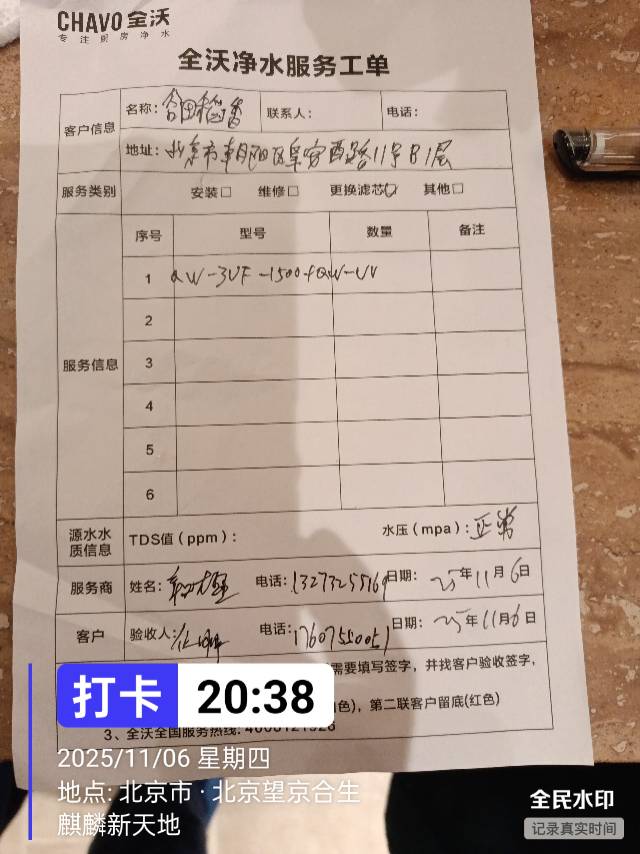 CHAVO 全沃
专注厨房净水
全沃净水服务工单
客户信息 名称： 联系人： 电话：
地址：北京市朝阳区阜安西路11号B1层
服务类别 安装□ 维修□ 更换滤芯□ 其他□
服务信息 序号 型号 数量 备注
1 QW-3UF-1500+QW-UV
2
3
4
5
6
源水水质信息 TDS值（ppm）： 水压（mpa）：正常
服务商 姓名： 电话：13273255769 日期：25年11月6日
客户 验收人： 电话：17607550051 日期：25年11月6日
需要填写签字，并找客户验收签字，
色)，第二联客户留底(红色)
3、全沃全国服务热线：
打卡 20:38
2025/11/06 星期四
地点: 北京市·北京望京合生
麒麟新天地
全民水印
记录真实时间